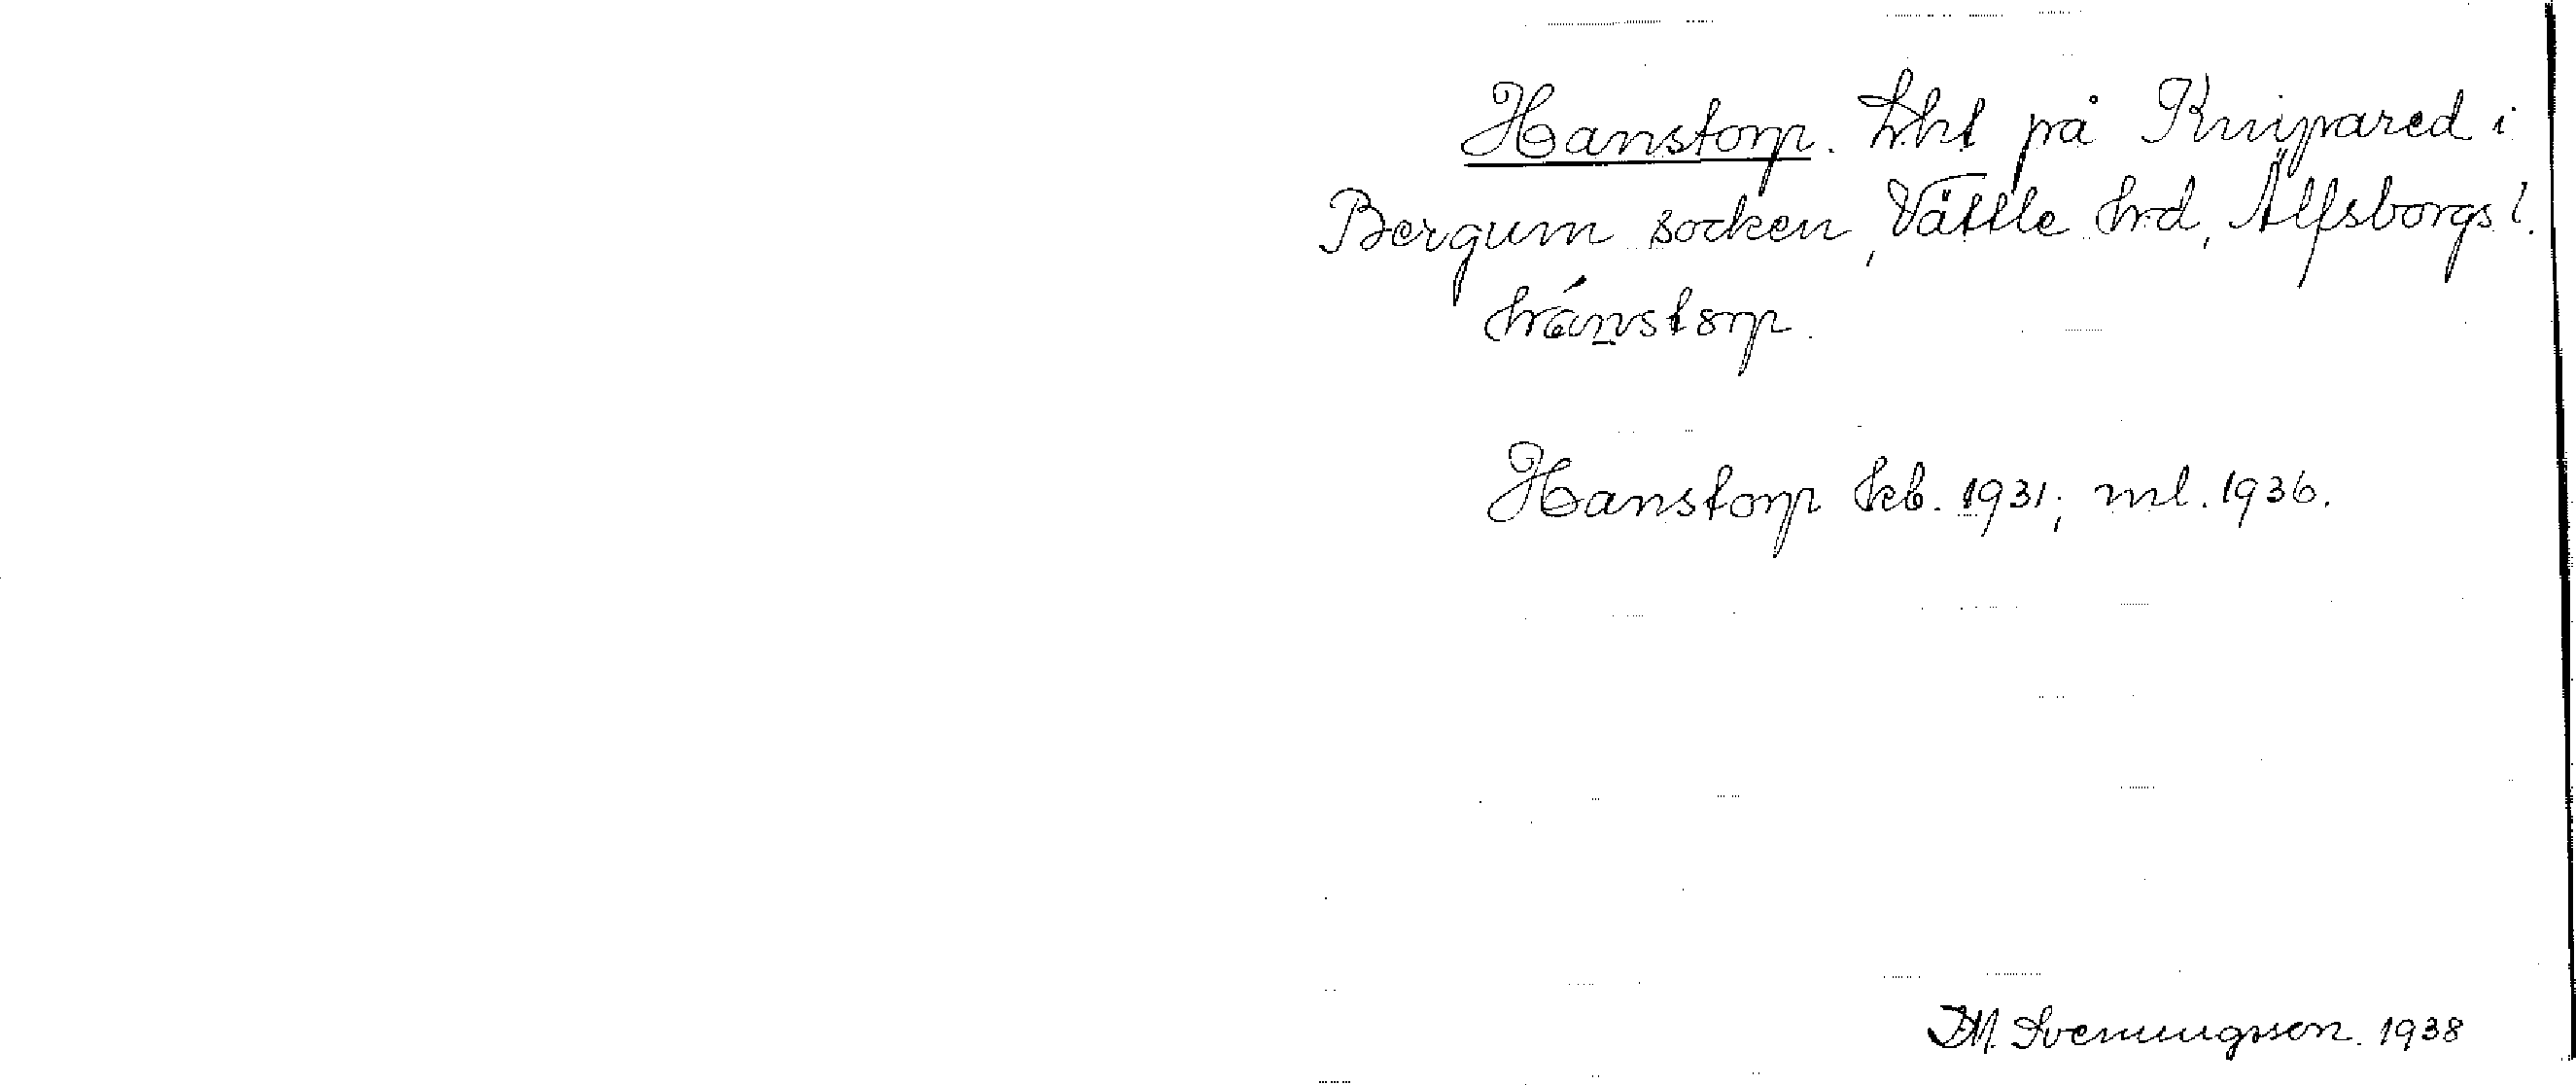 Hanstorp. Lht på Knipared i
Bergum socken, Vättle hrd, Älfsborgs l.
hánstorp.
Hanstorp kb. 1931; ml. 1936.
D.M. Svenungsson. 1938